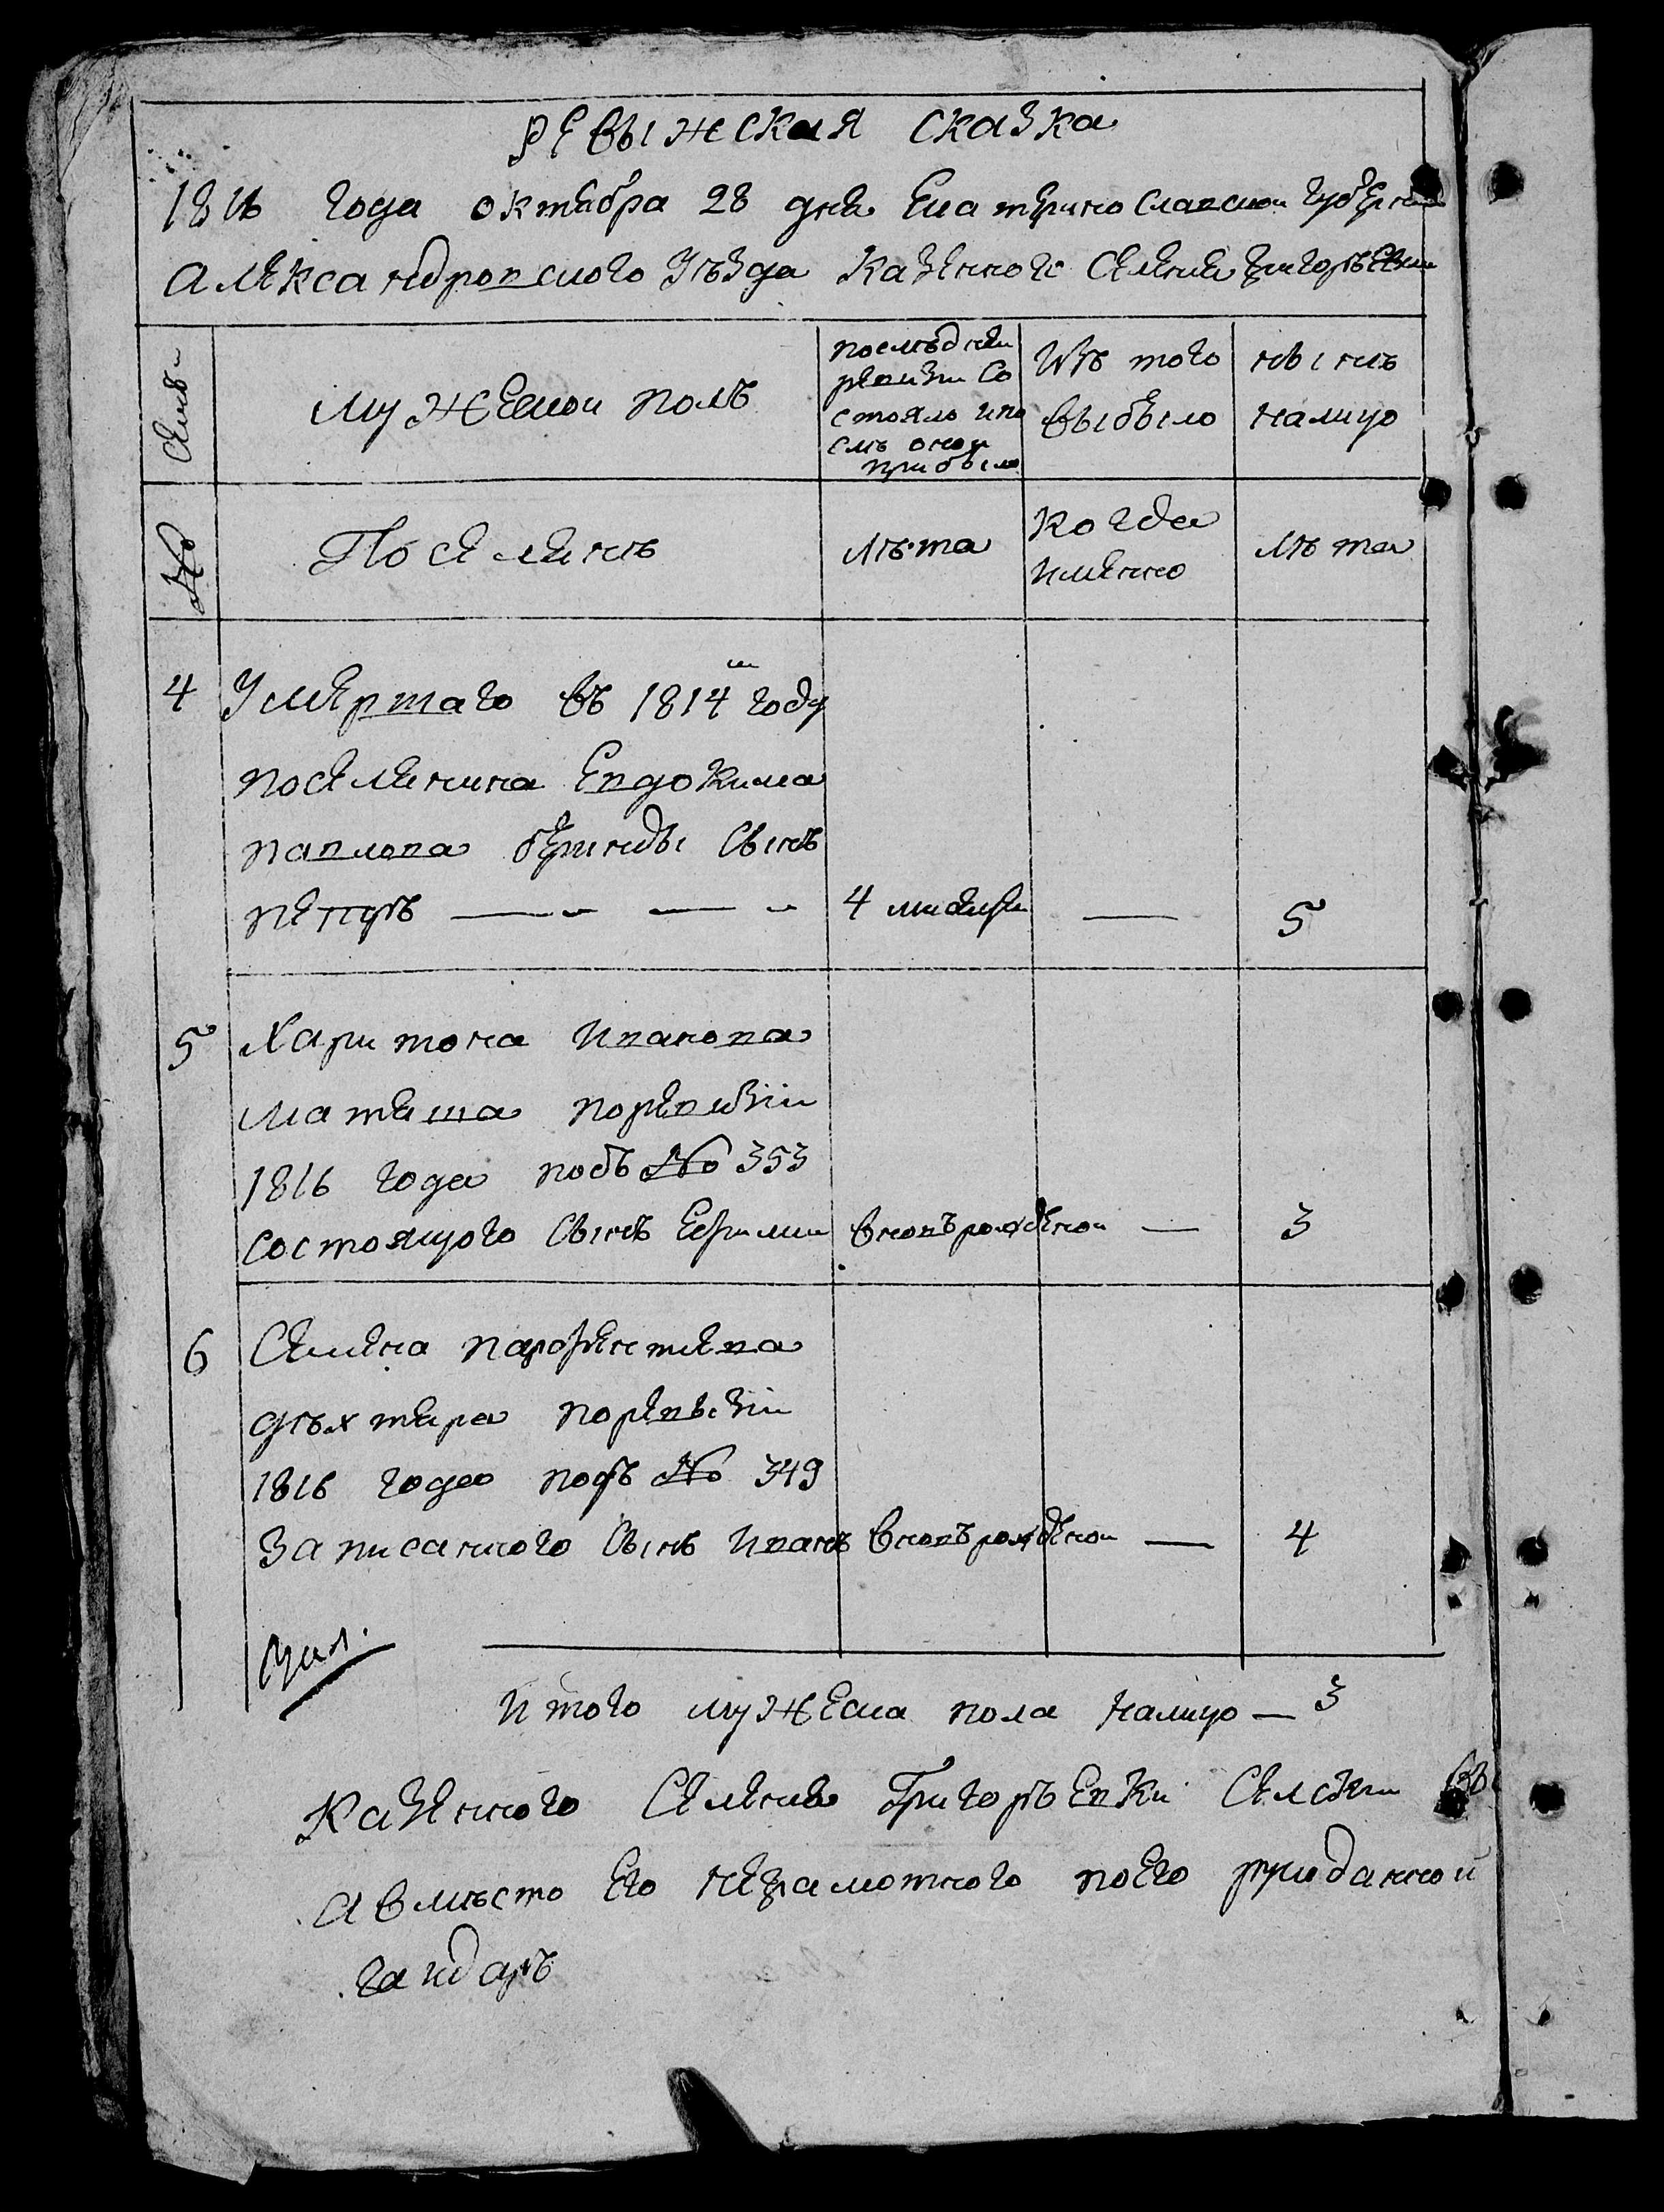 Ревыжская сказка
1816 года октября 28 дня Екатеринославской губернии
Александровского уѣзда Казенного Селения Григорьевки
Семьи
мужескои полъ
последнеи ревизии состояло и после онои прибыло
Изъ того выбыло
нынѣ налицо
№
Поселянъ
лѣта
Когда имянно
лѣта
4 Умершаго въ 1814м году
поселянина Евдокима
павлова беринды сынъ
петръ — — 4 месяци — 5
5 Харитона Иванова
Матяша поревизіи
1816 года подъ № 353
состоящого сынъ Ефимъ вновърожденои — 3
6 Семена парфентиева
дѣхтяра поревызіи
1816 года подъ № 349
записанного сынъ Иванъ вновърожденои — 4
Итого мужеска пола налицо — 3
Казенного Селения Григоръевки Селскии
а вместо его неграмотного поего
гайдаръ